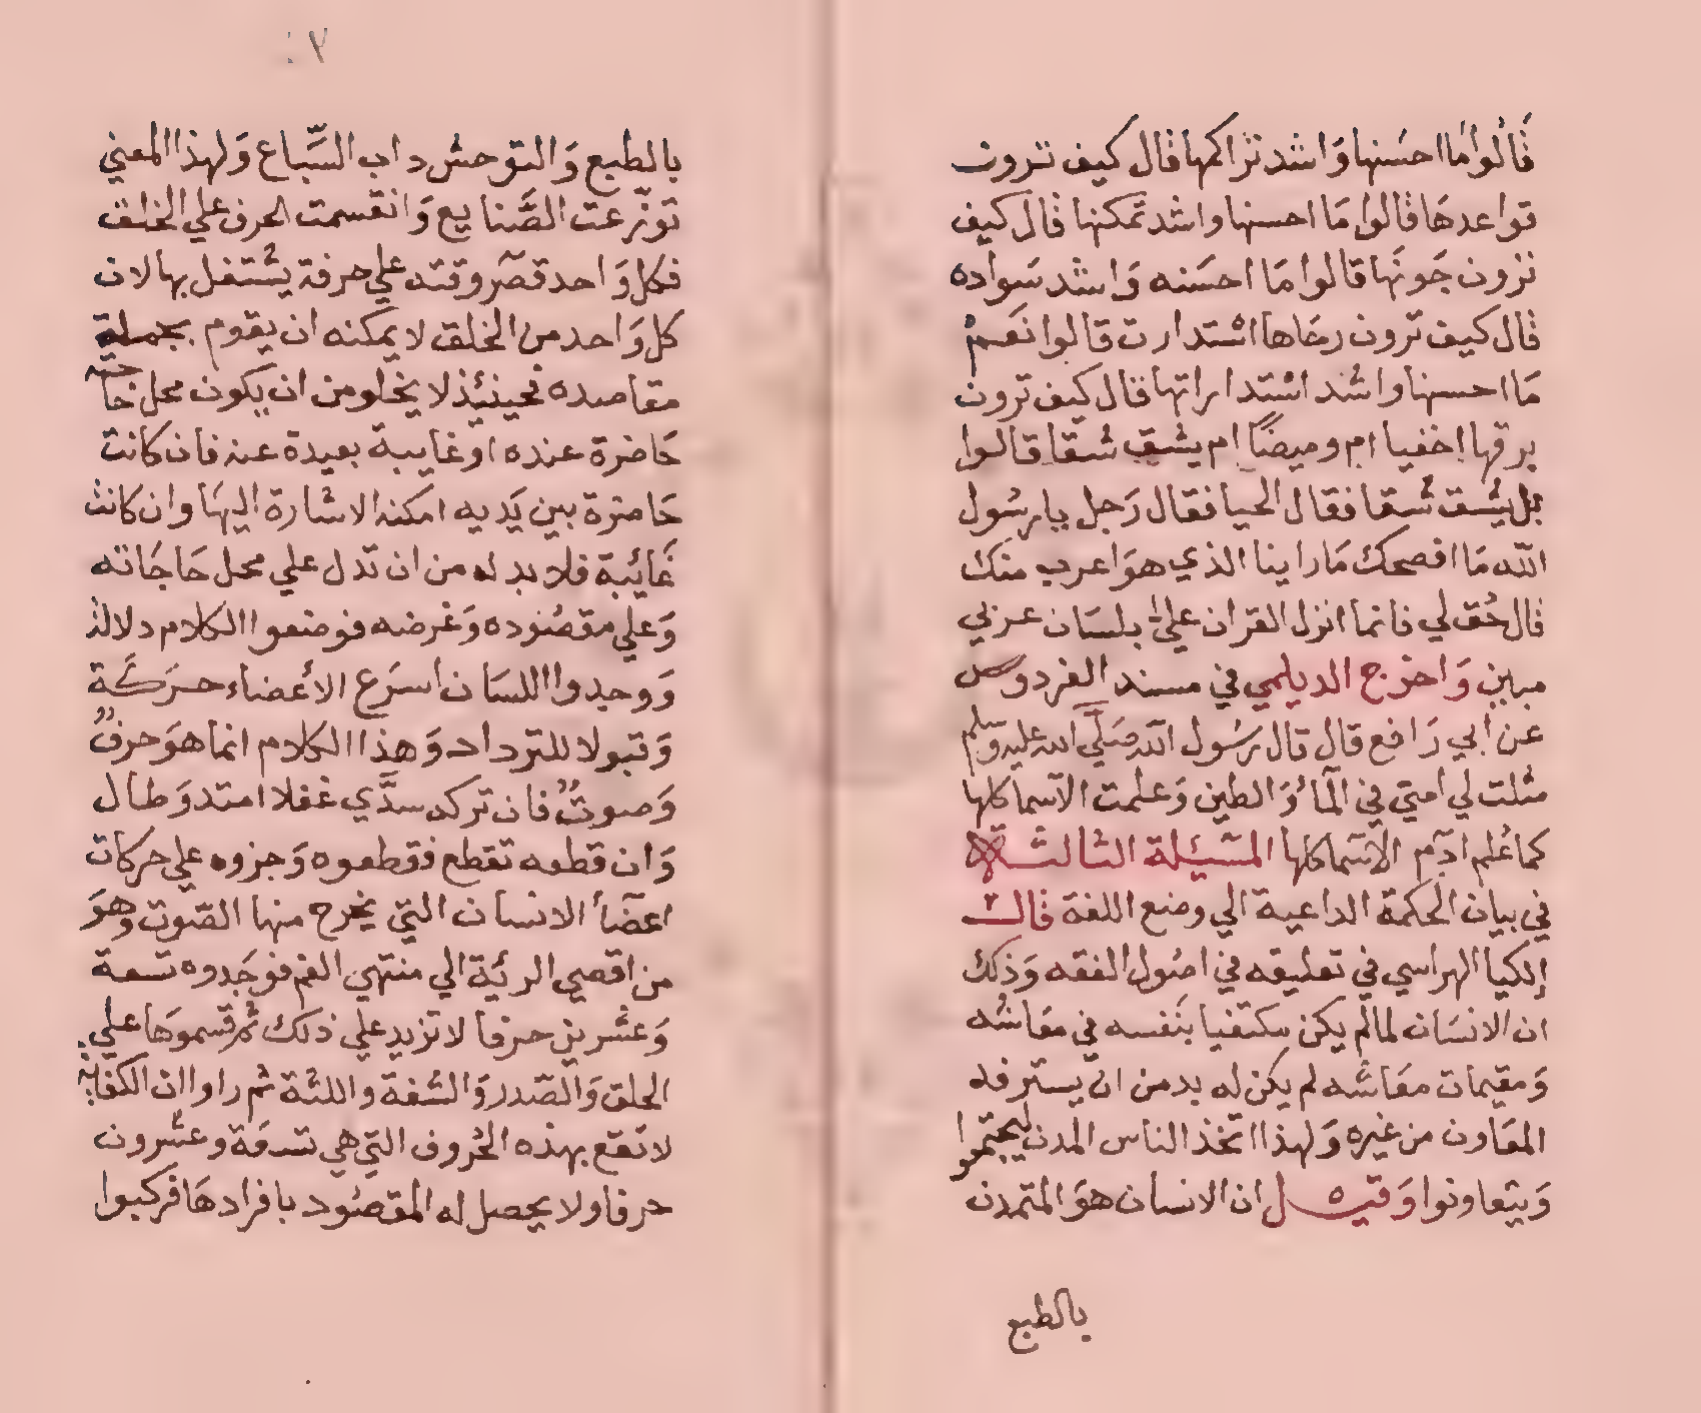 قالوا ما احسنها وَاشد تراكمها قال كيف ترون
قواعدهَا قالوا مَا احسنها واشد تمكنها قال كيف
ترون جَونَها قالوا مَا احسَنه وَاشد سَواده
قال كيف ترون رحَاها استدارت قالوا نعَم
مَا احسنها واشد استداراتها قال كيف ترون
برقها اخفيا ام وميضًا ام يشق شقا قالوا
بل يشق شقا فقال الحيا فقال رَجل يا رسُول
الله مَا افصحك مَا راينا الذي هوَ اعرب منك
قال حُق لي فانما انزل القران عليّ بلسَان عربي
مبين وَاخرج الديلمي في مسند الفردوس
عن ابي رَافع قال قال رسُول الله صَلّي الله عليه وسلم
مثلت لي امتي في المآء وَالطين وَعلمت الآسما كلها
كما عُلم ادَم الآسَما كلها المسَئلة الثالثة
في بيان الحكمة الداعية الي وضع اللغة قال
إلكيا الهراسي في تعليقه في اصُول الفقه وَذلك
ان الانسَان لما لم يكن مكتفيا بنَفسه في معَاشه
وَمقيمات معَاشه لم يكن له بد من ان يسترفد
المعَاون من غيره وَلهذا اتخذ الناس المدن ليجتمعوا
وَيتعاونوا وَقيل ان الانسان هوَ المتمدن
بالطبع
٧
بالطبع وَالتوحش داب السِّباع وَلهذا المعني
توزّعت الصَّنايع وَانقسمت الحرف علي الخلق
فكل وَاحد قصَر وقته علي حرفة يشتغل بها لان
كل وَاحد من الخلق لا يمكنه ان يقوم بجملة
مقاصده فحينئذ لا يخلو من ان يكون محل حَاجته
حَاضرة عنده او غايبة بعيدة عنه فان كانت
حَاضرة بين يَديه امكنه الاشارة اليهَا وان كانت
غَائبة فلا بد له من ان تدل علي محل حَاجَاته
وَعلي مقصُوده وَغرضه فوضعوا الكلام دلالة
وَوجدوا اللسَان اسرَع الأعضاء حرَكَة
وَقبولا للترداد وَهذا الكلام انما هوَ حرفٌ
وَصوتٌ فان تركه سدًّي غفلا امتد وَطال
وَان قطعه تقطع فقطعوه وَجزوه علي حركات
اعضَآ الانسان التي يخرج منها الصَوت وهوَ
من اقصي الرئة الي منتهي الفم فوجَدوه تسعة
وَعشرين حرفا لا تزيد علي ذلك ثم قسموهَا علي
الحلق وَالصَدر وَالشفة واللثة ثم راوا ان الكفاية
لا تقع بهذه الحُروف التي هي تسعَة وعشرون
حرفا ولا يحصل له المقصُود بافرادهَا فركبوا